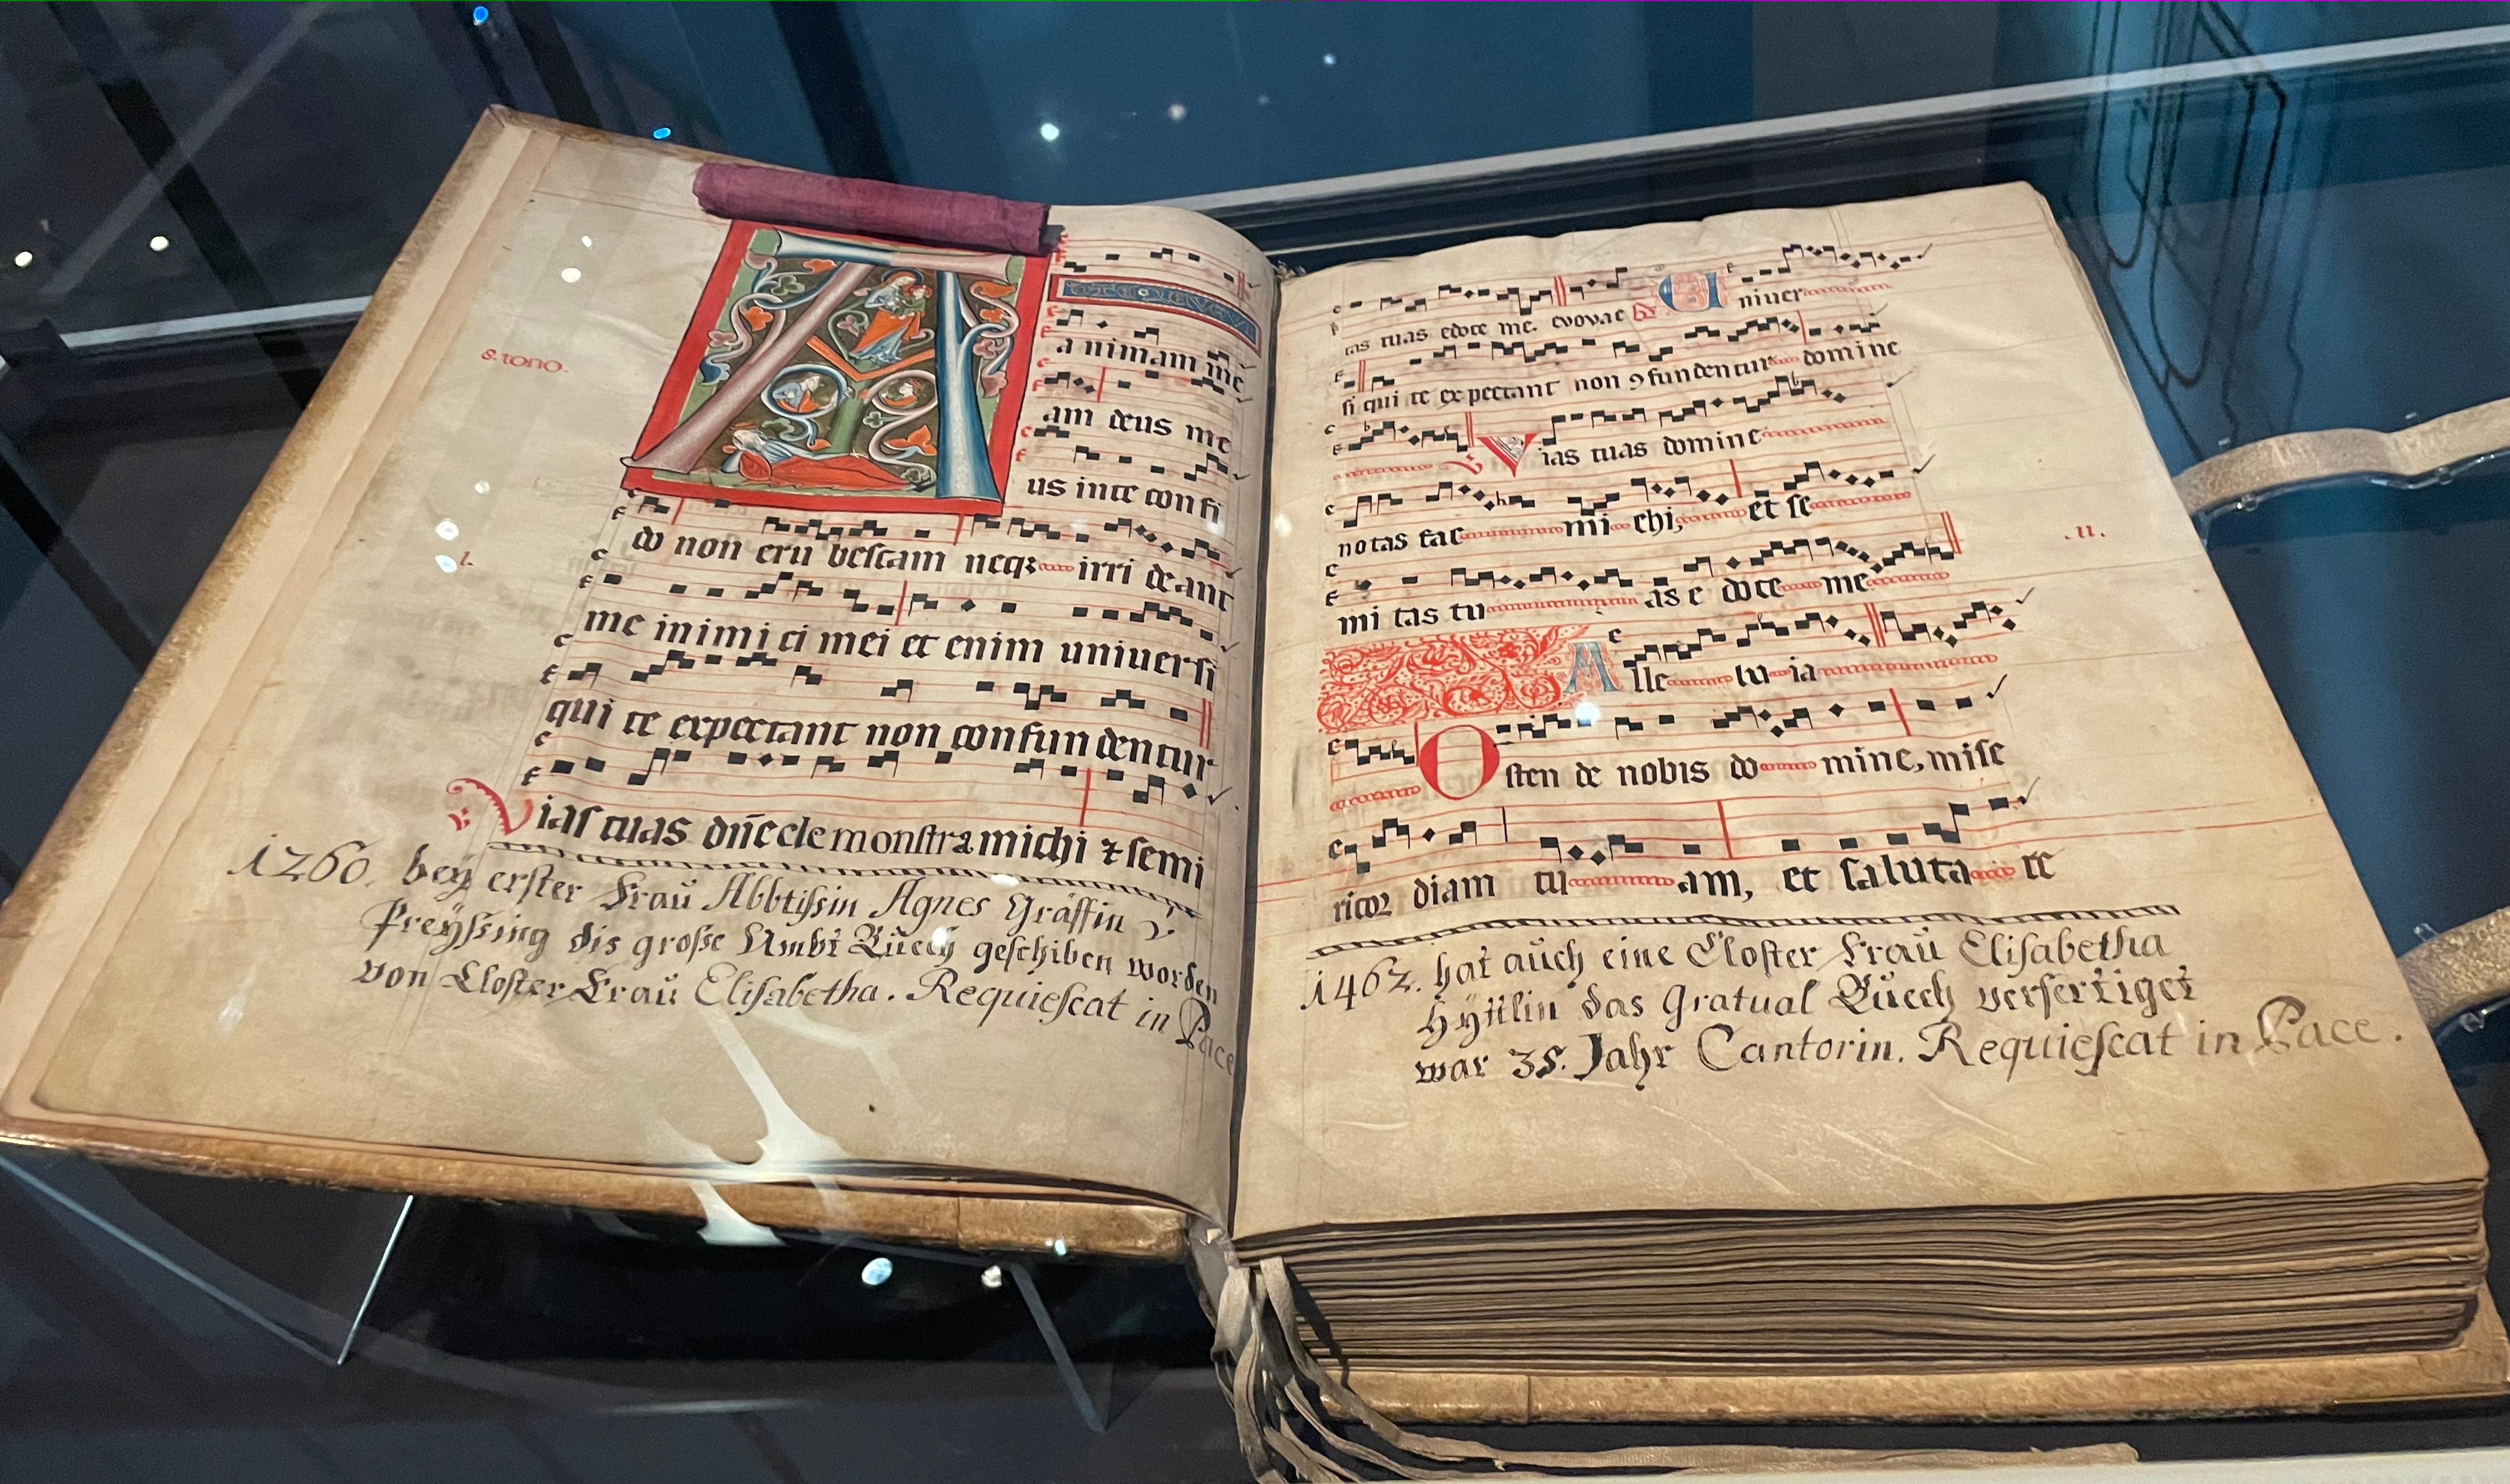 8. tono.
a nimam me
am deus me
us in te confi
do non eru bescam neq; irri deant
me inimi ci mei et enim universi
qui te expectant non confun dentur
V Vias tuas dñe demonstra michi ⁊ semi
1260. bey erster Fraŭ Abbtissin Agnes Gräffin v
Preÿssing dis grosse Ambt Büech geschiben worden
von Closter Fraŭ Elisabetha. Requiescat in Pace
tas tuas edoce me. evovae Univer
si qui te ex pectant non ꝯfundentur domine
Vias tuas domine
notas fac mi chi, et se
mi tas tu as e doce me
.II.
Alle lu ia
Osten de nobis do mine, mise
ricor diam tu am, et saluta re
1462. hat aŭch eine Closter Fraŭ Elisabetha
das Gratual Büech verfertiget
war 35. Jahr Cantorin. Requiescat in Pace.